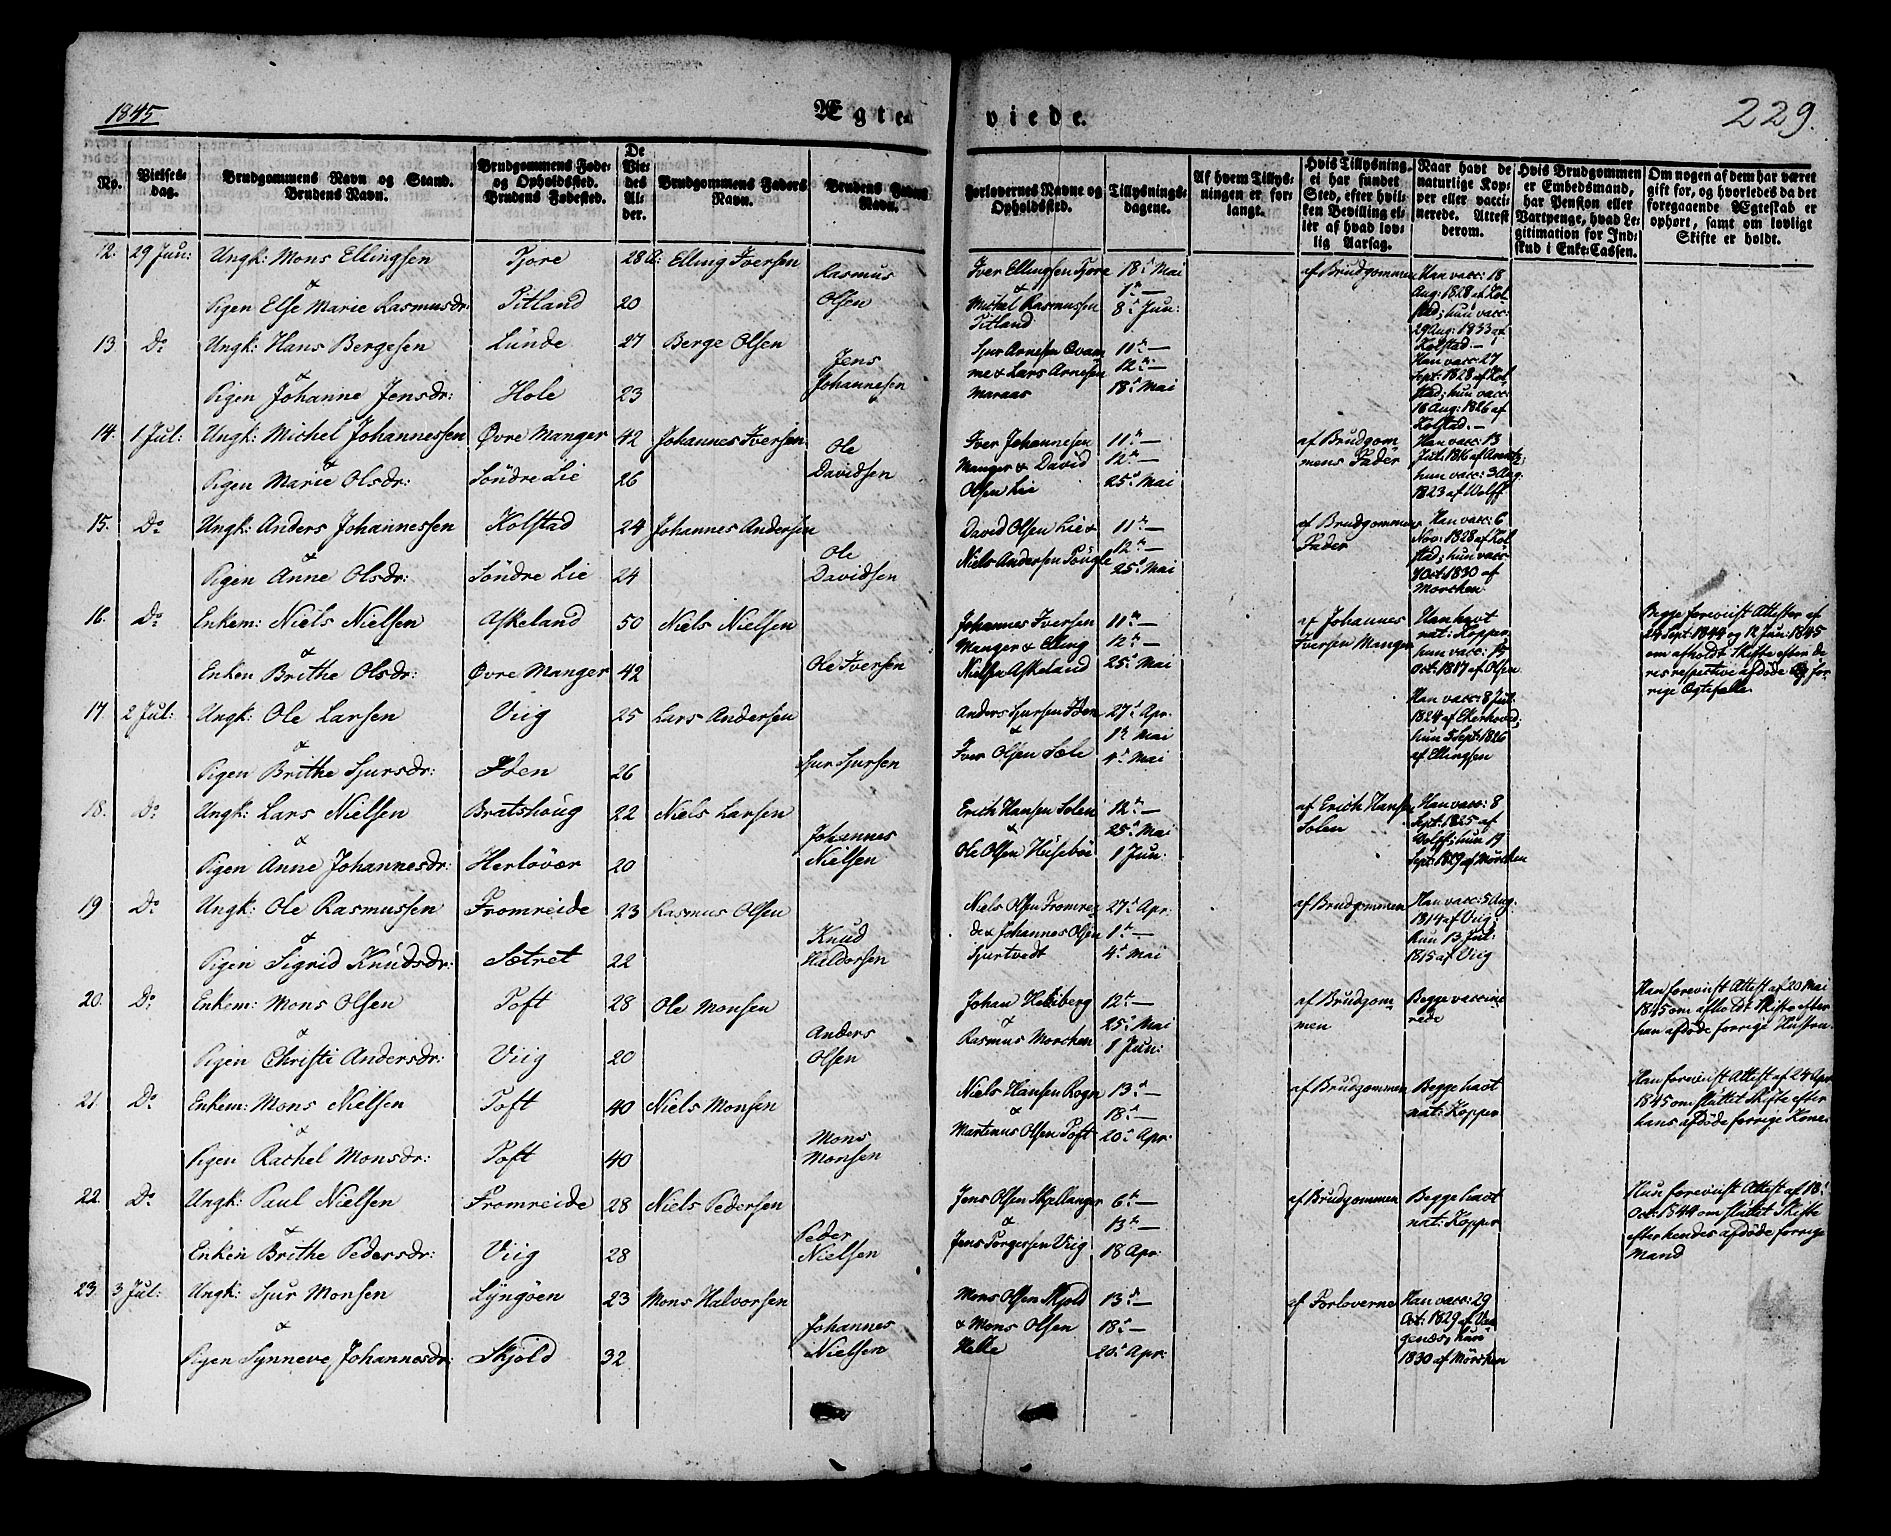 1845
Ægteviede.
229.
No.
Vielses-
dag.
Brudgommens Navn og Stand.
Brudens Navn.
Brudgommens Føde-
og Opholdssted.
Brudens Fødested.
De
Vie-
des
Al-
der.
Brudgommens Faders
Navn.
Brudens Faders
Navn.
Forlovernes Navne og
Opholdssted.
Tillysnings-
dagene.
Af hvem Tillys-
ningen er for-
langt.
Hvis Tillysning
ei har fundet
Sted, efter hvil-
ken Bevilling el-
ler af hvad lov-
lig Aarsag.
Naar havt de
naturlige Kop-
per eller vacci-
nerede. Attest
derom.
Hvis Brudgommen
er Embedsmand,
har Pension eller
Vartpenge, hvad Le-
gitimation for Ind-
skud i Enke-Cassen.
Om nogen af dem har været
gift før, og hvorledes da det
foregaaende Ægteskab er
ophørt, samt om lovligt
Skifte er holdt.
12. 29 Jun: Ungk: Mons Ellingsen Tjore 28 Elling Iversen
&
Pigen Else Marie Rasmusdr: Titland 20
Rasmus
Olsen
Iver Ellingsen Tjore
&
Michel Rasmussen
Titland
18. Mai
1. —
8. Jun:
af Brudgommen
Han vacc: 18
Aug: 1828 af Kol-
stad; hun vacc:
29 Aug: 1833 af
Kolstad. —
13. Do Ungk: Hans Bergesen Lunde 27 Berge Olsen
&
Pigen Johanne Jensdr: Hole 23
Jens
Johannesen
Sjur Arnesen Qvam-
me & Lars Arnesen
Maraas
11. —
12. —
18. Mai
Han vacc: 27
Sept: 1828 af Kol-
stad; hun vacc:
18 Aug: 1826 af
Kolstad. —
14. 1 Jul: Ungk: Michel Johannessen Øvre Manger 42 Johannes Iversen
&
Pigen Marie Olsdr: Söndre Lie 26
Ole
Davidsen
Iver Johannesen
Manger & David
Olsen Lie
11. —
12. —
25. Mai
af Brudgom-
mens Fader
Han vacc: 13
Jul: 1816 af
hun vacc: 3 Aug:
1823 af Wolff
15. Do Ungk: Anders Johannessen Kolstad 24 Johannes Andersen
&
Pigen Anne Olsdr: Söndre Lie 24
Ole
Davidsen
David Olsen Lie &
Niels Andersen Tougle
11. —
12. —
25. Mai
af Brudgommens
Fader
Han vacc: 6
Nov: 1828 af Kol-
stad; hun vacc:
Oct: 1830 af
Morchen
16. Do Enkem: Niels Nielsen Askeland 50 Niels Nielsen
&
Enken Brithe Olsdr: Øvre Manger 42
Ole Iversen
Johannes Iversen
Manger & Elling
Nielsen Askeland
11. —
12. —
25. Mai
af Johannes
Iversen Manger
Han havt
nat: Kopper
hun vacc: 15
Oct: 1817 af Olsen
Begge foreviist Attester af
24 Sept: 1844 og 12 Jun: 1845
om afholdt Skifte efter de-
res respective afdøde for-
rige Ægtefælle.
17. 2 Jul: Ungk: Ole Larsen Viig 25 Lars Andersen
&
Pigen Brithe Sjursdr: Iden 26
Sjur Sjursen
Anders Sjursen Iden
&
Iver Olsen Sæle
27. Apr:
1. Mai
4. Mai
Han vacc: 8 Jul:
1824 af
hun 5 Sept: 1826
af Ellingsen
18. Do Ungk: Lars Nielsen Bratshoug 22 Niels Larsen
&
Pigen Anne Johannesdr: Herlöver 20
Johannes
Nielsen
Erich Hansen Solen
&
Ole Olsen Huseböe
12. —
25. Mai
1 Jun:
af Erich Hansen
Solen
Han vacc: 8
Sept: 1825 af
Wolff; hun 17
Sept: 1829 af Mörchen
19 Do Ungk: Ole Rasmussen Fromreide 23 Rasmus Olsen
&
Pigen Sigrid Knudsdr: Sætret 22
Knud
Haldorsen
Niels Olsen Fromrei-
de & Johannes Olsen
Sjurtvedt
27. Apr:
1. —
4. Mai
af Brudgommen
Han vacc: 5 Aug:
1814 af Viig;
hun 13 Jul:
1815 af Viig
20. Do Enkem: Mons Olsen Toft 28 Ole Monsen
&
Pigen Christi Andersdr: Viig 20
Anders
Olsen
Johan Heiberg
&
Rasmus Morchen
12. —
25. Mai
1 Jun:
af Brudgom-
men
Begge vaccine-
rede
Han foreviist Attest af 20 Mai
1845 om afholdt Skifte efter
han afdøde forrige Hustru.
21 Do Enkem: Mons Nielsen Toft 40 Niels Monsen
&
Pigen Rachel Monsdr: Toft 40
Mons
Monsen
Niels Hansen Rogn
&
Martinus Olsen Toft
13. —
18. —
20. Apr:
af Brudgommen
Begge havt
nat: Kopper
Han foreviist Attest af 24 Apr
1845 om sluttet Skifte efter
hans afdøde forrige Kone.
22. Do Ungk: Paul Nielsen Fromreide 28 Niels Pedersen
&
Enken Brithe Pedersdr: Viig 28
Peder
Nielsen
Jens Olsen Skjellanger
&
Jens Torgersen Viig
6. —
13. —
18 Apr:
af Brudgommen
Begge havt
nat: Kopper
Hun foreviist Attest af 18.
Oct: 1844 om sluttet Skifte
efter hendes afdøde forrige
Mand
23. 3 Jul: Ungk: Sjur Monsen Lyngöen 23 Mons Halvorsen
&
Pigen Synneve Johannesdr: Skjold 32
Johannes
Nielsen
Mons Olsen Skjold
& Mons Olsen
Helle
13. —
18. —
20. Apr:
af Forloverne
Han vacc: 29
Oct: 1829 af
hun
1830 af Mörchen